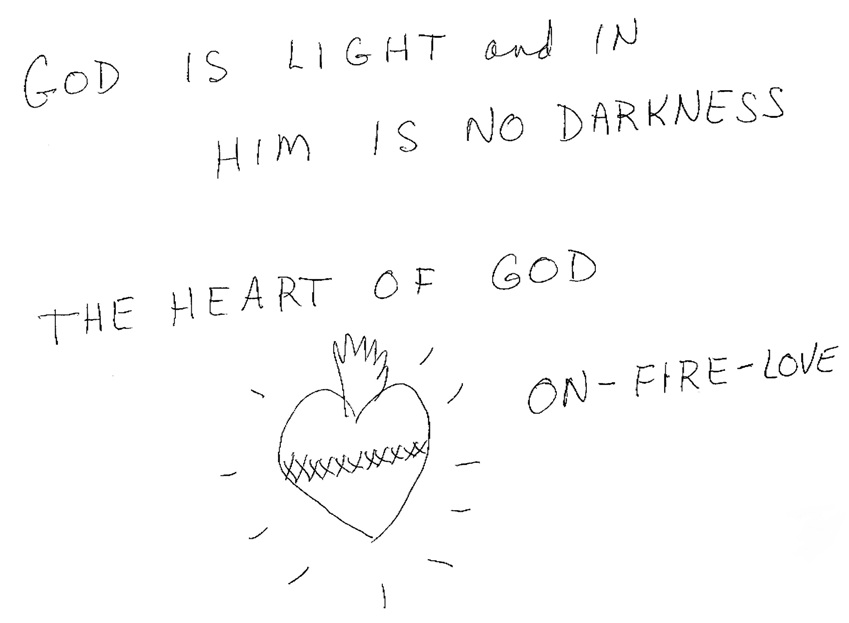 GOD IS LIGHT and IN
HIM IS NO DARKNESS
THE HEART OF GOD
ON-FIRE-LOVE